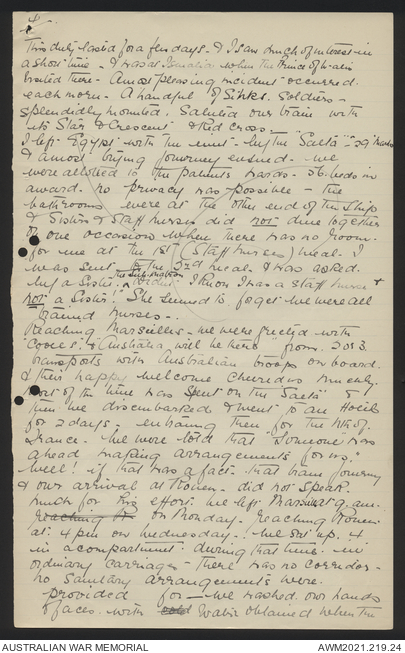 4
This duty lasted for a few days - & I saw much of interest in
a short time - I was at Ismalia when the Prince of Wales
visited there - A most pleasing incident occurred.
each morn - A handful of Sikhs. Soldiers -
splendidly mounted. Saluted our train with
its Star & Crescent & Red Cross -
I left Egypt with the unit - by the "Salta" - 29 March
& a most trying journey ensued - we
were allotted to the patients wards - 36 beds in
a ward. no privacy was possible - the
bathrooms were at the other end of the ship
& Sisters & Staff nurses did not dine together
& on one occasion when there was no room
for me at the 1st (Staff nurses) meal - I
was sent to the 2nd meal & was asked.
by a Sister. the Sub Section leader did I know I was a Staff nurse &
not a Sister! She seemed to forget we were all
trained nurses -.
Reaching Marseilles - we were greeted with
"Cooees." & "Australia will be here" from 2 or 3
transports with Australian troops on board.
& their happy welcome cheered us muchly.
Most of the time was spent on the "Salta" &
then we disembarked & went to an Hotel
for 2 days - entraining then for the Nth of
France. We were told that "Someone was
ahead making arrangements for us."
Well! if that was a fact - that train journey
& our arrival at Rouen - did not speak
much for his effort. We left Marseilles 9 a.m.
reaching R on Monday. Reaching Rouen
at 4 pm on Wednesday. We sat up. 4
in a compartment during that time. in
ordinary carriages - there was no corridor -
no sanitary arrangements were.
provided for - we washed our hands
& faces with cold water obtained when the
AUSTRALIAN WAR MEMORIAL
AWM2021.219.24